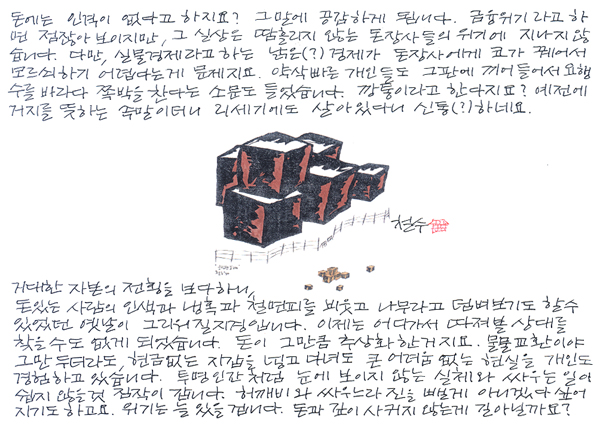 돈에는 인격이 없다고 하지요? 그 말에 공감하게 됩니다. 금융위기라고 하
면 점잖아 보이지만, 그 실상은 땀흘리지 않는 돈장사들의 위기에 지나지 않
습니다. 다만, 실물경제라고 하는 낡은(?) 경제가 돈장사에게 코가 꿰어서
모르쇠하기 어렵다는게 문제지요. 약삭빠른 개인들도 그판에 끼어들어서 요행
수를 바라다 쪽박을 찬다는 소문도 들었습니다. 깡통이라고 한다지요? 예전에
거지를 뜻하는 속말이더니 21세기에도 살아있다니 신통(?)하네요.
철수
거대한 자본의 전횡을 보다하니,
돈있는 사람의 인색과 냉혹과 철면피를 비웃고 나무라고 덤벼보기도 할수
있었던 옛날이 그리워질지경입니다. 이제는 어디가서 따져볼 상대를
찾을수도 없게 되었습니다. 돈이 그만큼 추상화 한거지요. 물물교환이야
그만 두더라도, 현금없는 지갑을 넣고 다녀도 큰 어려움 없는 현실을 개인도
경험하고 있습니다. 투명인간처럼 눈에 보이지 않는 실체와 싸우는 일이
쉽지 않을것 짐작이 갑니다. 허깨비와 싸우느라 진을 빼는게 아니겠나 싶어
지기도 하고요. 위기는 늘 있을겁니다. 돈과 깊이 사귀지 않는게 길아닐까요?